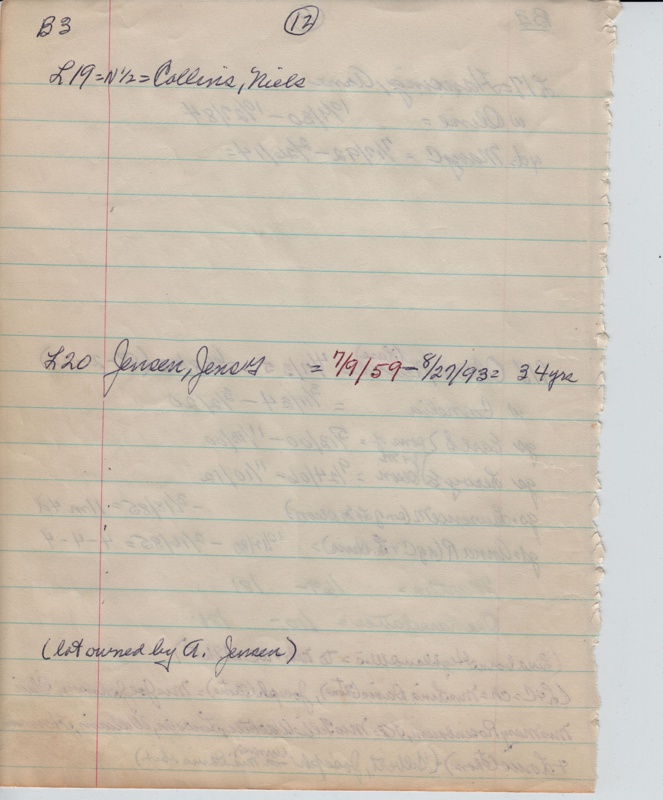 B3
12
L19=N1/2=Collins, Niels
L20 Jensen, Jens = 7/9/59-8/27/93= 34yrs
(lot owned by A. Jensen)